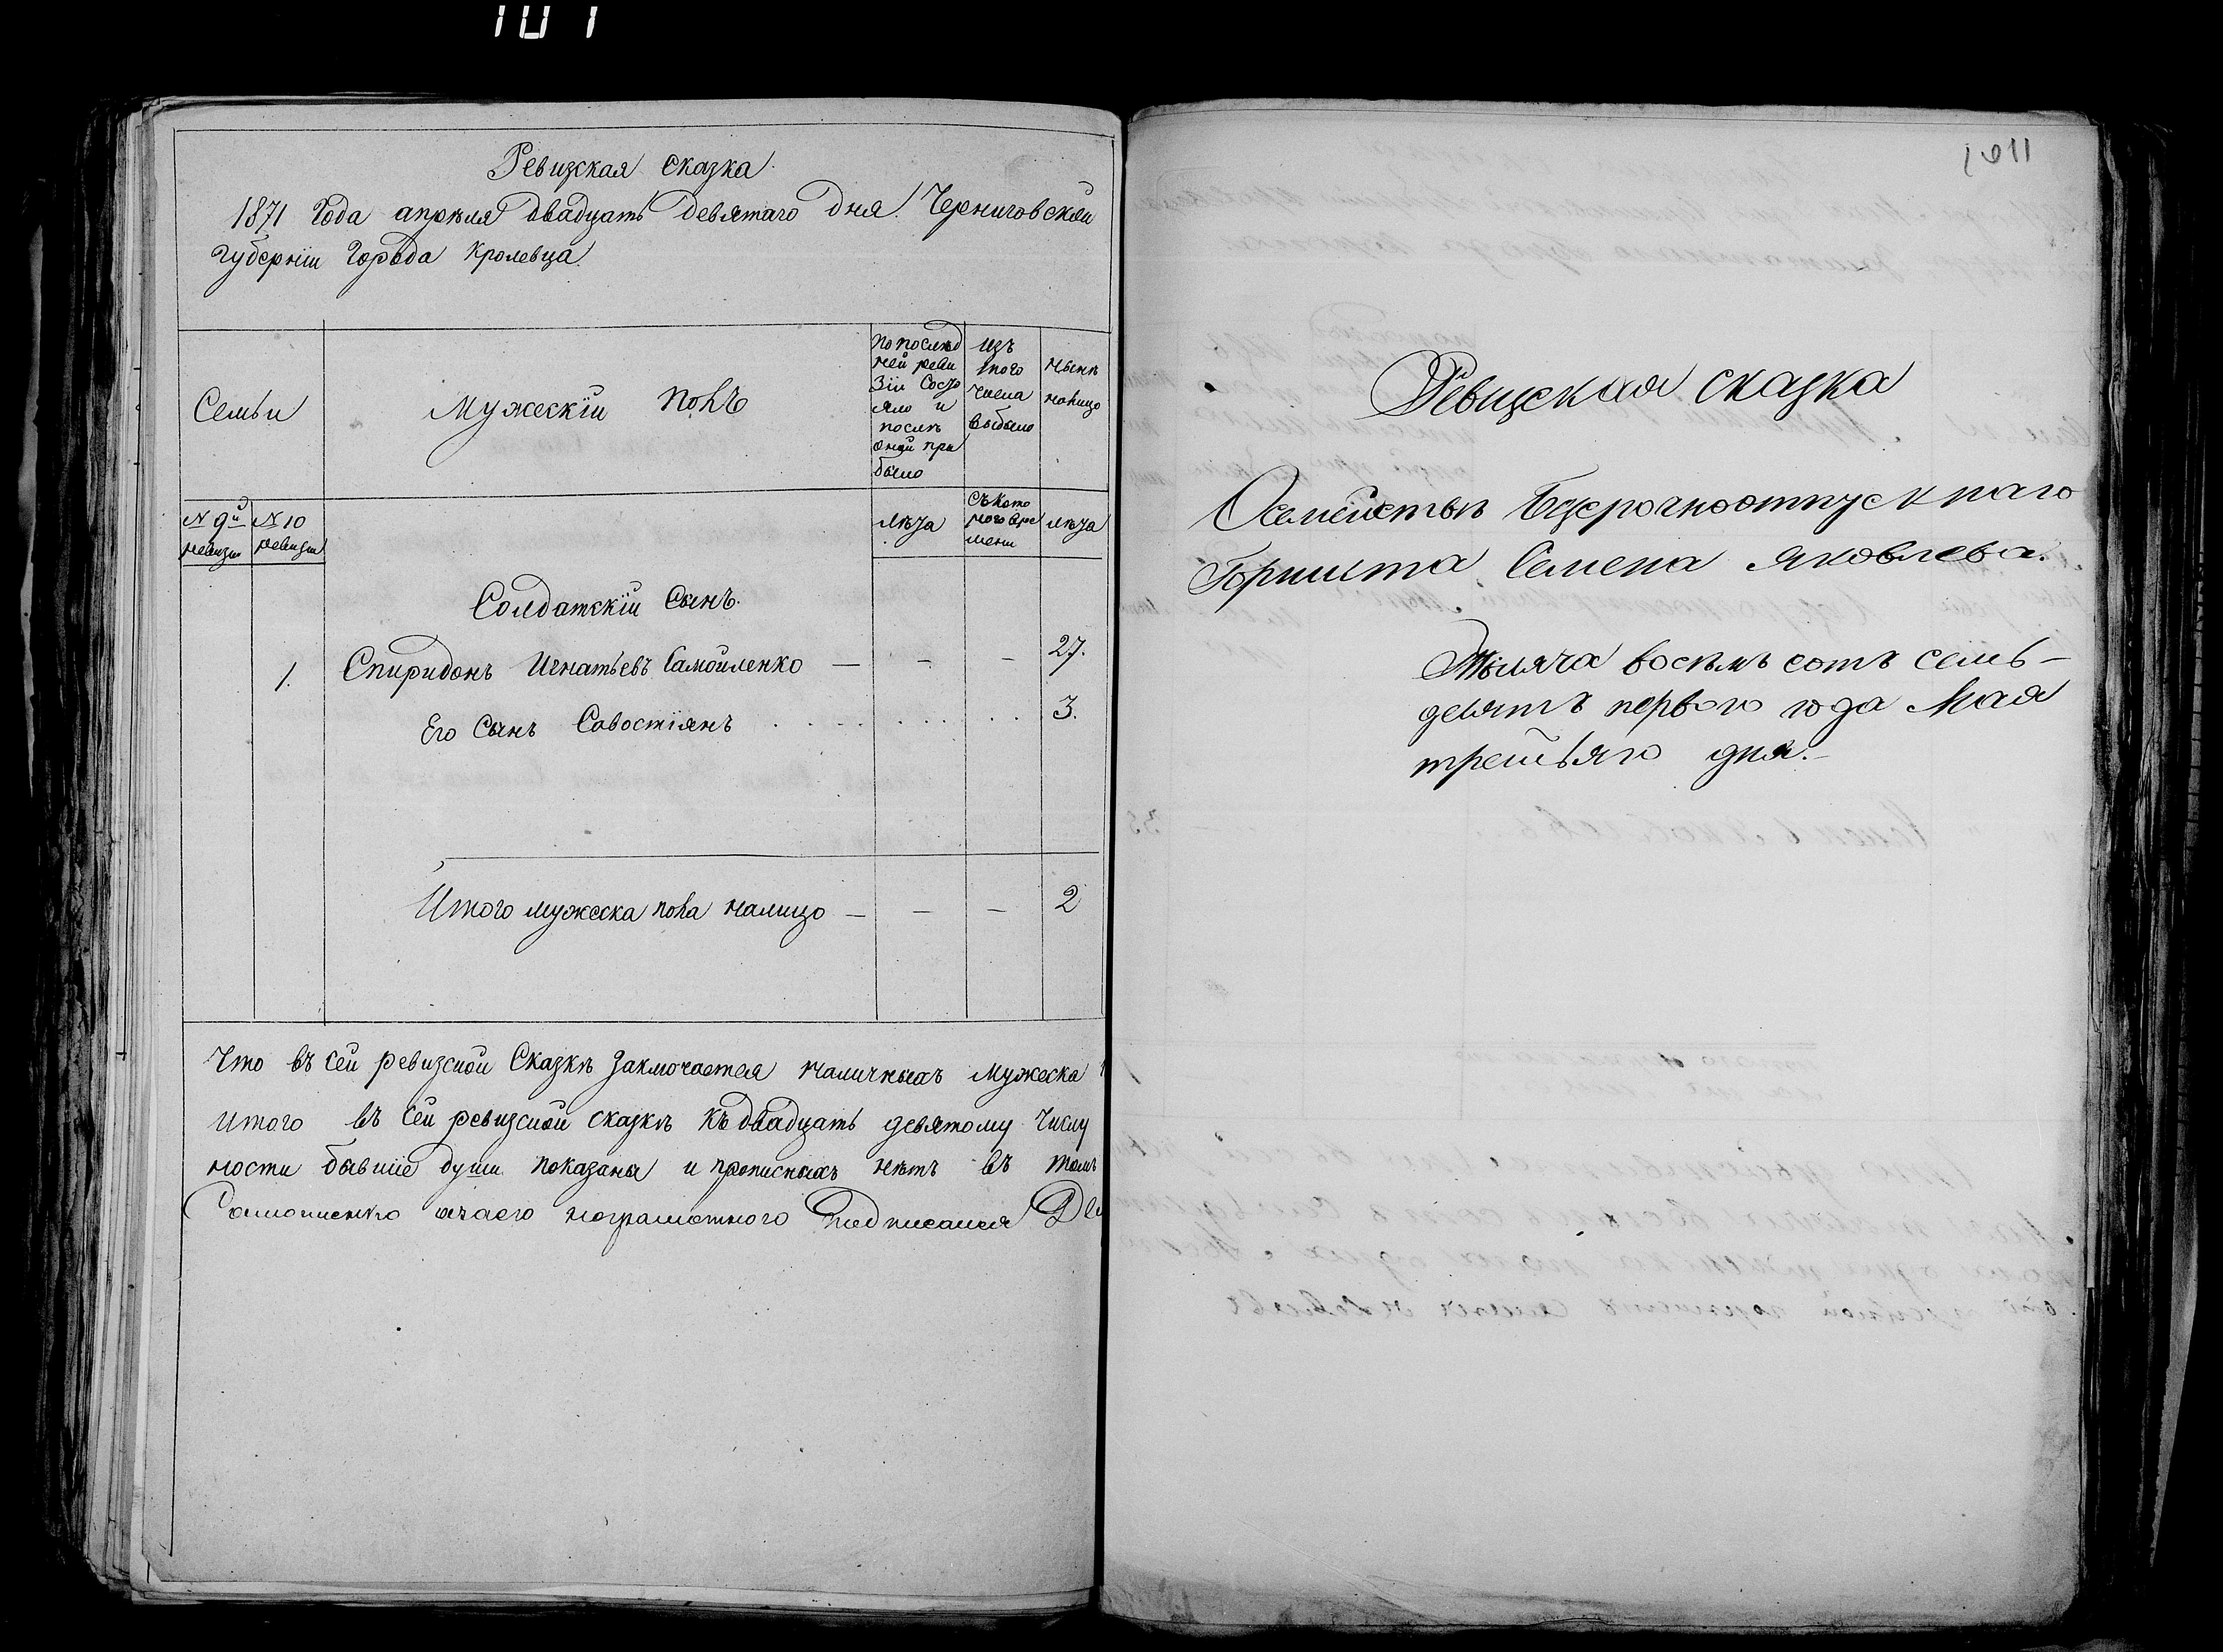 101
Ревизская сказка
1871 Года апрѣля двадцать девятаго дня. Черниговской
губерніи Города Кролевца.
Семьи
Мужескій полъ
По послѣд
ней реви
зіи Состо
яло и
послѣ
оной при
было
изъ
того
числа
выбыло
нынѣ
налицо
№ 9й
ревизіи
№ 10
ревизіи
лѣта
Съ кото
раго вре
мени
лѣта
Солдатскій Сынъ.
1. Спиридонъ Игнатьевъ Самойленко — — — 27.
Его Сынъ Савостіянъ 3.
Итого мужеска пола налицо — — — 2
Что въ сей ревизской Сказкѣ Заключается наличныхъ Мужеска
итого въ сей ревизской сказкѣ къ двадцать девятому числу
ности бывшіе души показаны и прописныхъ нѣтъ въ томъ
Самойленко неграмотного Подписался
Ревизская сказка
О семействѣ Безсрочноотпускнаго
Горниста Семена Яковлева.
Тысяча восемь сотъ семь-
десятъ первого года Мая
третьяго дня.-